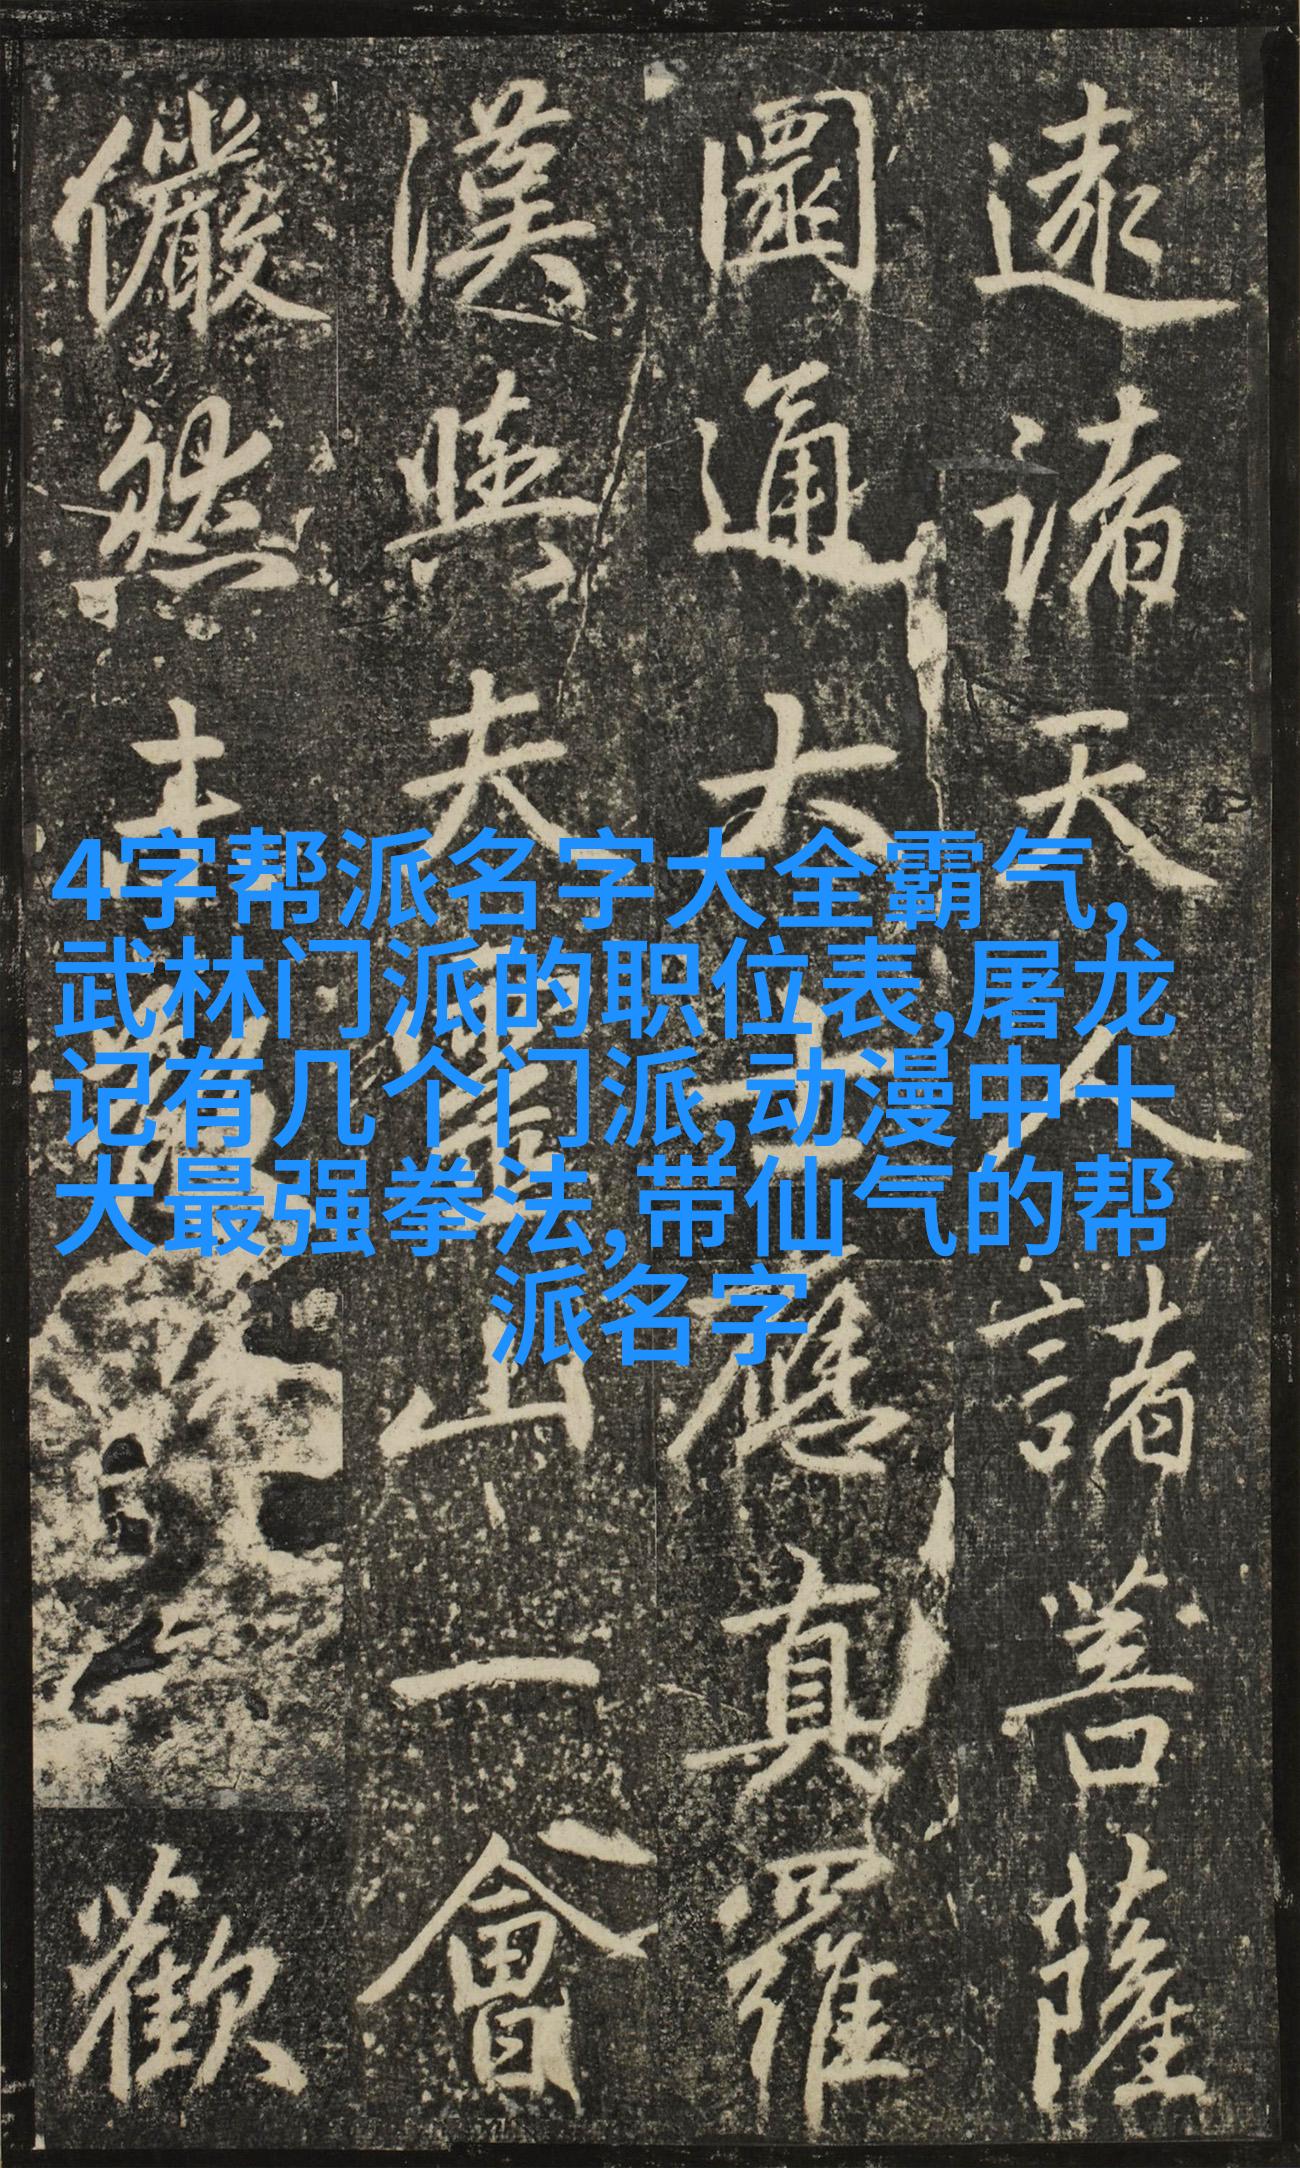 4字帮派名字大全霸气,
武林门派的职位表,屠龙
记有几个门派,动漫中十
大最强拳法,带仙气的帮
派名字
遠諸天人諸菩薩
圓通大士應真羅
漢與夫靈山一會
儼然歡